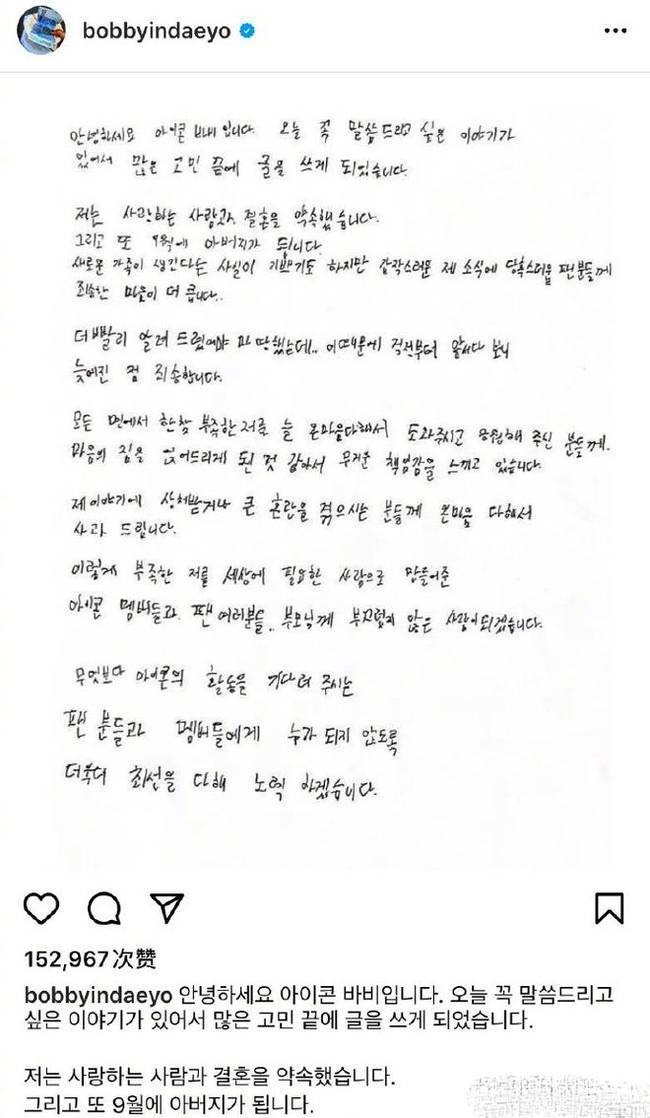 bobbyindaeyo
안녕하세요 아이콘 바비입니다. 오늘 꼭 말씀드리고 싶은 이야기가
있어서 많은 고민 끝에 글을 쓰게 되었습니다.
저는 사랑하는 사람과 결혼을 약속했습니다.
그리고 또 9월에 아버지가 됩니다.
새로운 가족이 생긴다는 사실이 기쁘기도 하지만 갑작스러운 제 소식에 당혹스러울 팬분들께
죄송한 마음이 더 큽니다..
더 빨리 알려 드렸어야 마땅했는데.. 이 때문에 걱정부터 앞서다 보니
늦어진 점 죄송합니다.
모든 면에서 한참 부족한 저를 늘 온마음다해서 도와주시고 응원해 주신 분들께.
마음의 짐을 얹어드리게 된 것 같아서 무거운 책임감을 느끼고 있습니다.
제 이야기에 상처받거나 큰 혼란을 겪으시는 분들께 온마음 다해서
사과 드립니다.
이렇게 부족한 저를 세상에 필요한 사람으로 만들어준
아이콘 멤버들과 팬 여러분들.. 부모님께 부끄럽지 않은 사람이되겠습니다.
무엇보다 아이콘의 활동을 기다려 주시는
팬 분들과 멤버들에게 누가 되지 않도록
더욱더 최선을 다해 노력 하겠습니다.
152,967次赞
bobbyindaeyo 안녕하세요 아이콘 바비입니다. 오늘 꼭 말씀드리고
싶은 이야기가 있어서 많은 고민 끝에 글을 쓰게 되었습니다.
저는 사랑하는 사람과 결혼을 약속했습니다.
그리고 또 9월에 아버지가 됩니다.